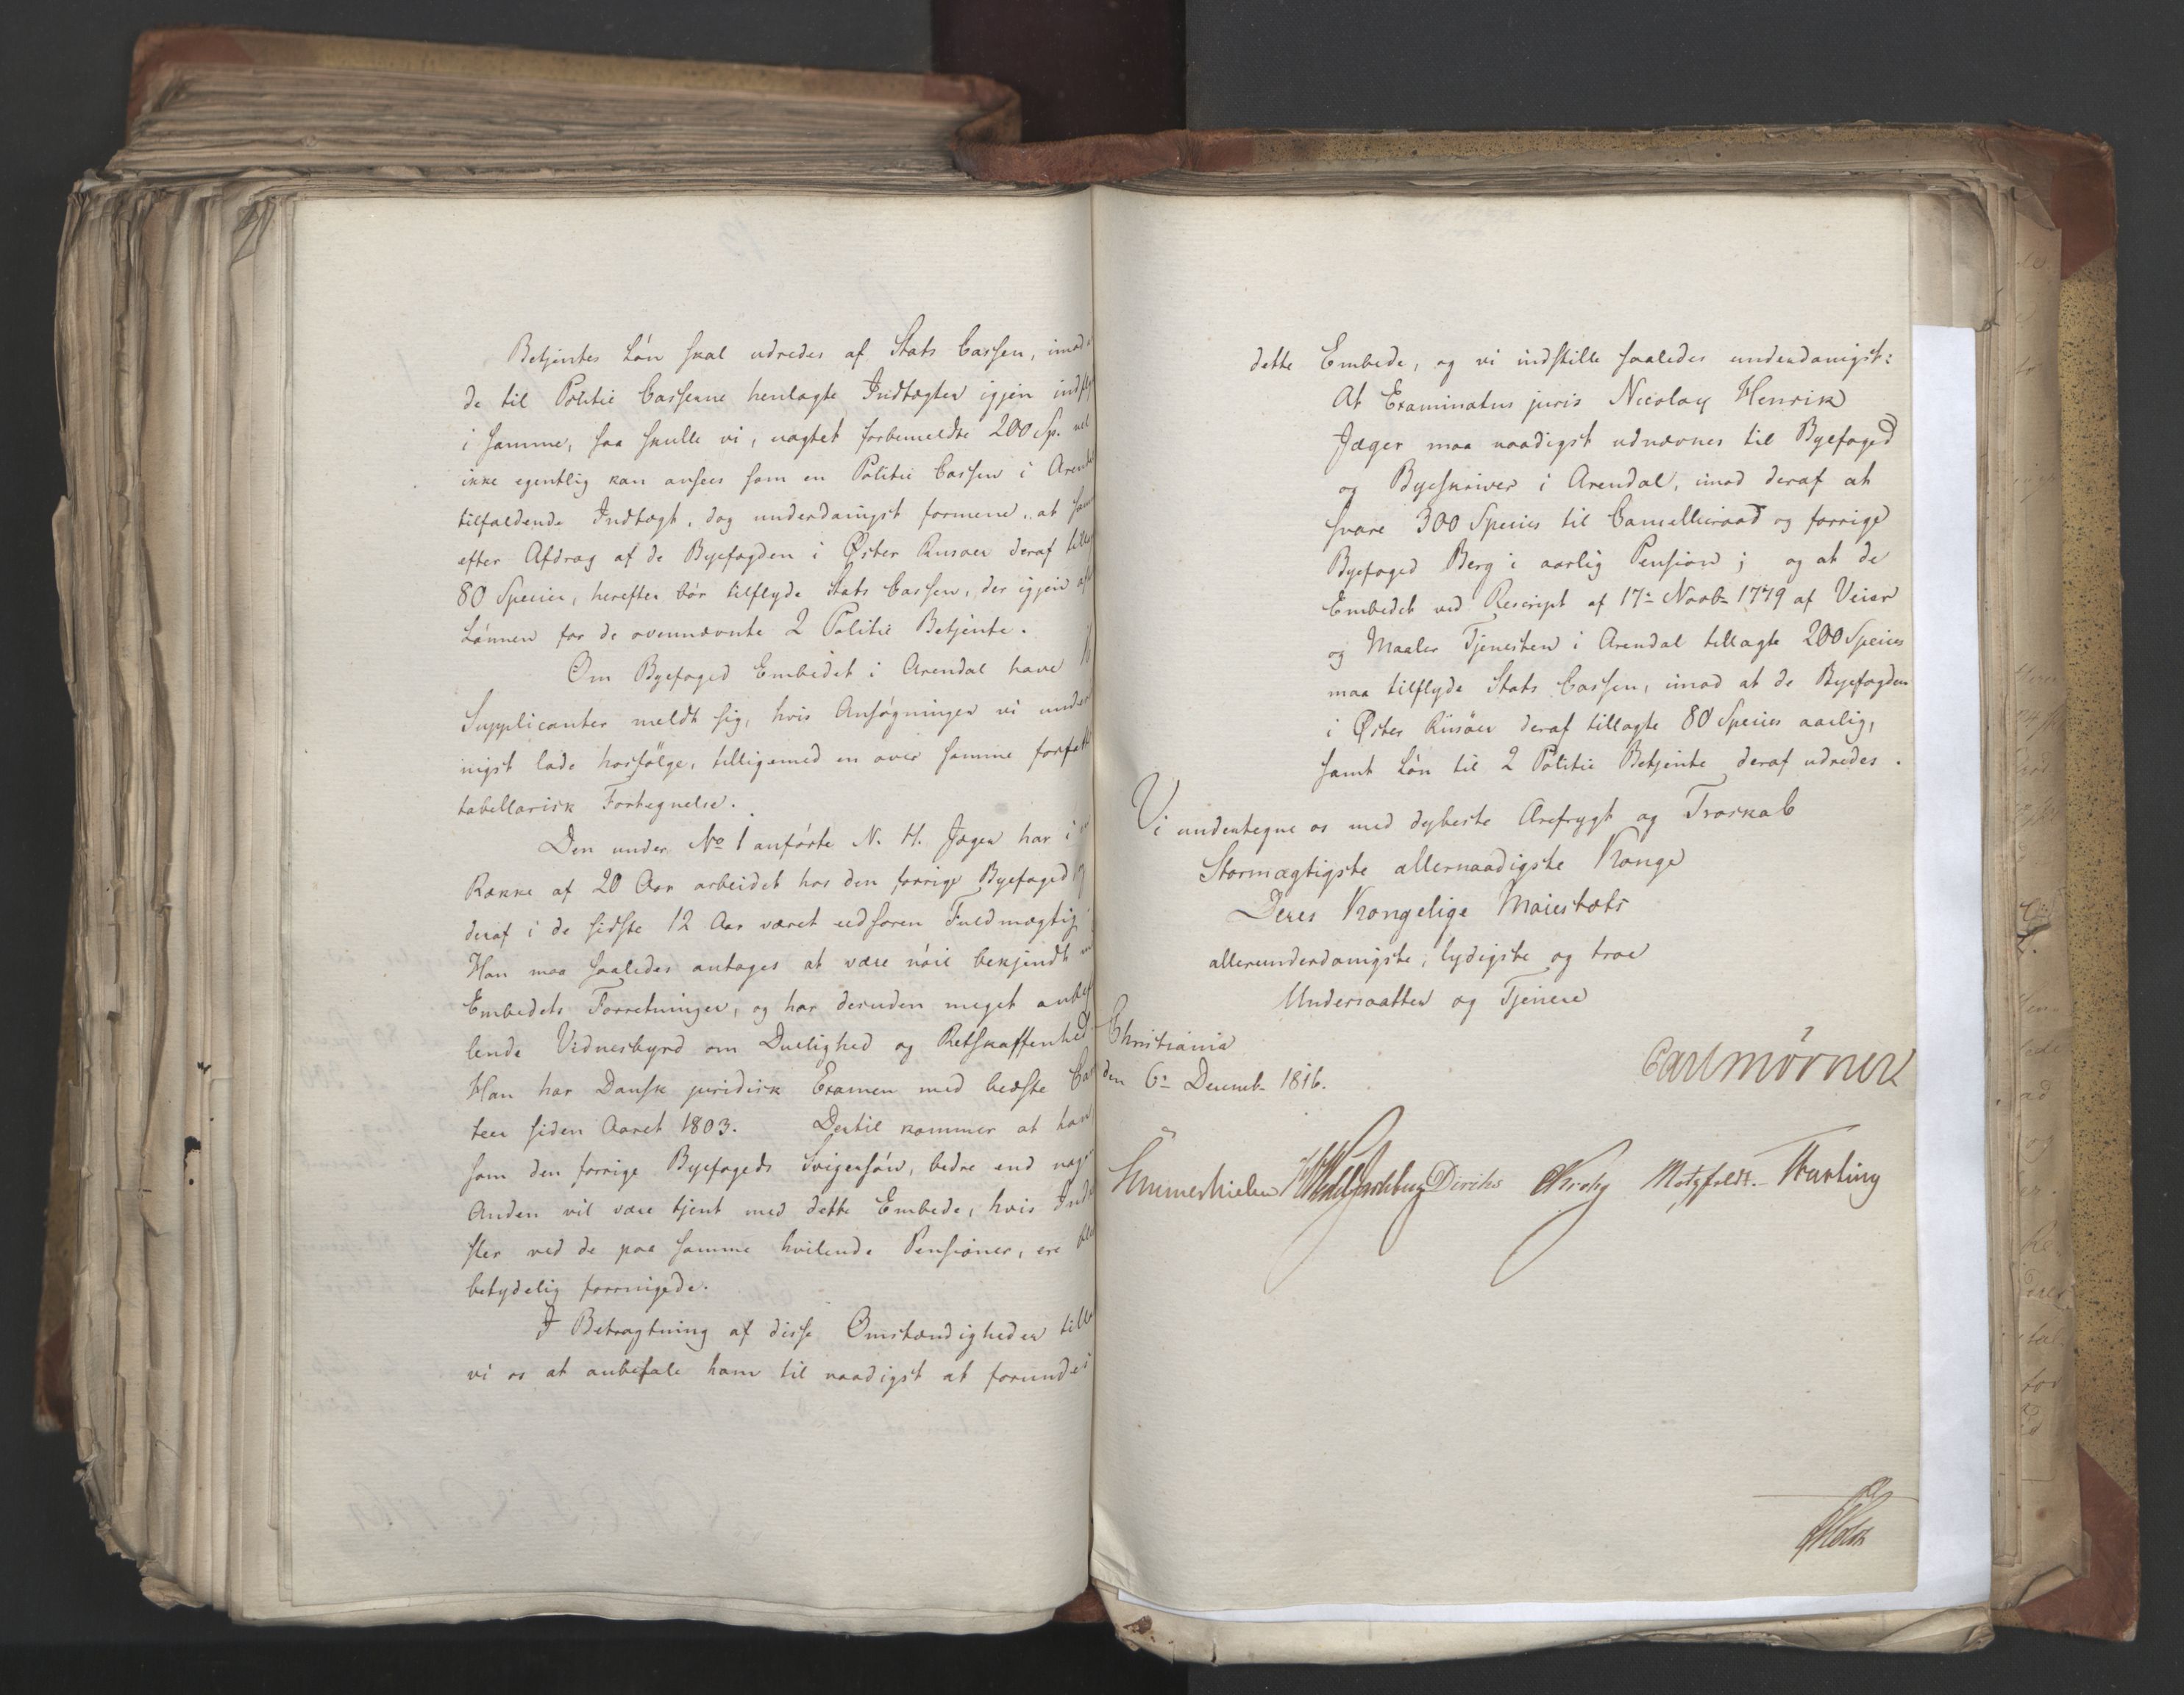 Betjentes Lön skal udredes af Stats Cassen, imod
de til Politie Casserne henlagte Indtægter igjen
i samme, saa skulle vi, uagtet forbemeldte 200 Sp. vel
ikke egentlig kan ansees som en Politie Cassen i Arendal
tilfaldende Indtægt, dog underdanigst formene, at
efter Afdrag af de Byefogden i Öster Riisöer deraf
80 Species, herefter bör tilflyde Stats Cassen, der igjen
Lönnen for de ovennævnte 2 Politie Betjente.
Om Byefoged Embedet i Arendal have
Supplicanter meldt sig, hvis Ansögninger vi under
nigst lade hosfölge, tilligemed en over samme
tabellarisk Fortegnelse.
Den under No 1 anförte N. H. Jæger har i
Række af 20 Aar arbeidet hos den forrige Byefoged
deraf i de sidste 12 Aar været edsvoren Fuldmægtig
Han maa saaledes antages at være nöie bekjendt
Embedets Forretninger, og har desuden meget anbef
lende Vidnesbyrd om Duelighed og Retskaffenhed
Han har Dansk juridisk Examen med bedste Ca
teer siden Aaret 1803. Dertil kommer at han
som den forrige Byefogeds Svigersön, bedre end nogen
Anden vil være tjent med dette Embede, hvis Ind
ster ved de paa samme hvilende Pensioner, ere
betydelig forringede.
I Betragtning af disse Omstændigheder
vi os at anbefale ham til naadigst at forundes
dette Embede, og vi indstille saaledes underdanigst:
At Examinatus juris Nicolay Henrik
Jæger maa naadigst udnævnes til Byefoged
og Byeskriver i Arendal, imod deraf at
svare 300 Species til Cancellieraad og forrige
Byefoged Berg i aarlig Pension; og at de
Embedet ved Rescript af 17de Novbr 1779 af Veier
og Maaler Tjenesten i Arendal tillagte 200 Species
maa tilflyde Stats Cassen, imod at de Byefogden
i Öster Riisöer deraf tillagte 80 Species aarlig,
samt Lön til 2 Politie Betjente deraf udredes.
Vi undertegne os med dybeste Ærefrygt og Troskab
Stormægtigste allernaadigste Konge
Deres Kongelige Maiestæts
allerunderdanigste, lydigste og troe
Undersaatter og Tjenere
Christiania
den 6te Decembr 1816.
Carl Mörner
Sommerhielm Diriks Krohg Motzfeldt. Thurling
Holst